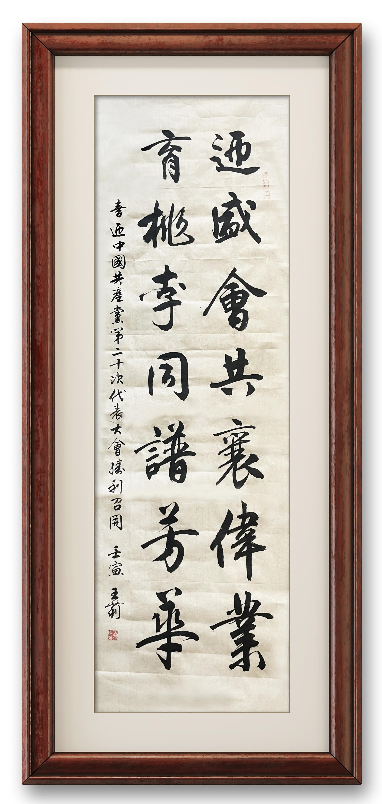 迎盛會共襄偉業
育桃李同譜芳華
書迎中國共產黨第二十次代表大會勝利召開 壬寅 王莉